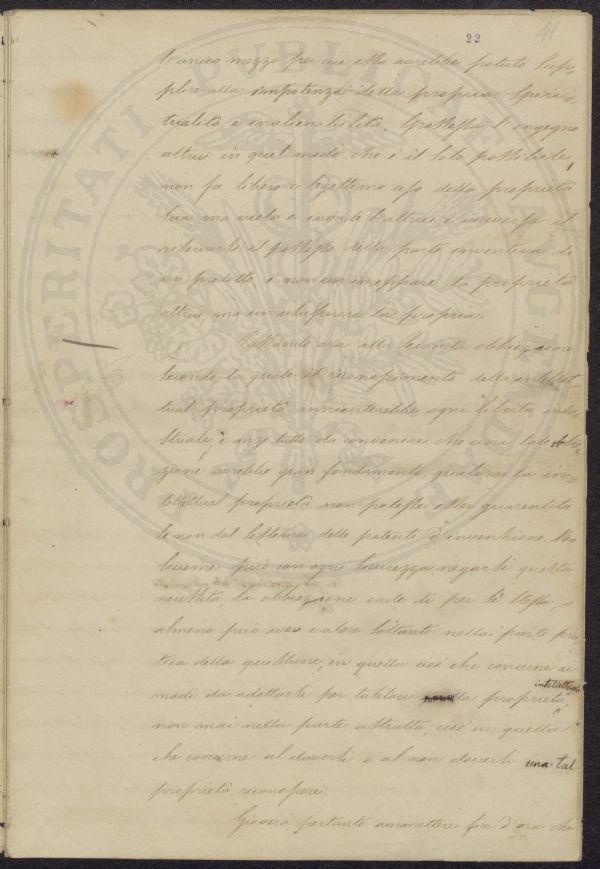 22
41
l'unico mezzo per cui esso avrebbe potuto sup-
plire alla impotenza della propria spiri-
tualità e inalienabilità. l'ingegno
altrui in quel modo che è il solo possibile,
non fa libero e legittimo uso della proprietà
sua ma viola e invade l'altrui e viceversa il
riservarsi il possesso della parte inventiva di
un prodotto è non un inceppare la proprietà
altrui ma un usufruire la propria.
Passando ora alla seconda obbiezione
secondo la quale il riconoscimento della intellet-
tual proprietà annienterebbe ogni libertà indu-
striale, è anzi tutto da convenire che una tale obbie-
zione avrebbe gran fondamento, qualora la in-
tellettual proprietà non potesse esser guarentita
se non dal sistema delle patenti d'invenzione. Ma
siccome può con ogni sicurezza negarsi questa
necessità, la obbiezione cade di per sè stessa, o
almeno può aver valore soltanto nella parte pra-
tica della questione, in quella cioè che concerne ai
modi da adottarsi per tutelare la proprietà intellettuale,
non mai nella parte astratta, cioè in quella
che concerne al doversi o al non doversi una tal
proprietà riconoscere.
Gioverà pertanto ammettere fin d'ora che
PROSPERITATI PUBLICAE AUGENDAE